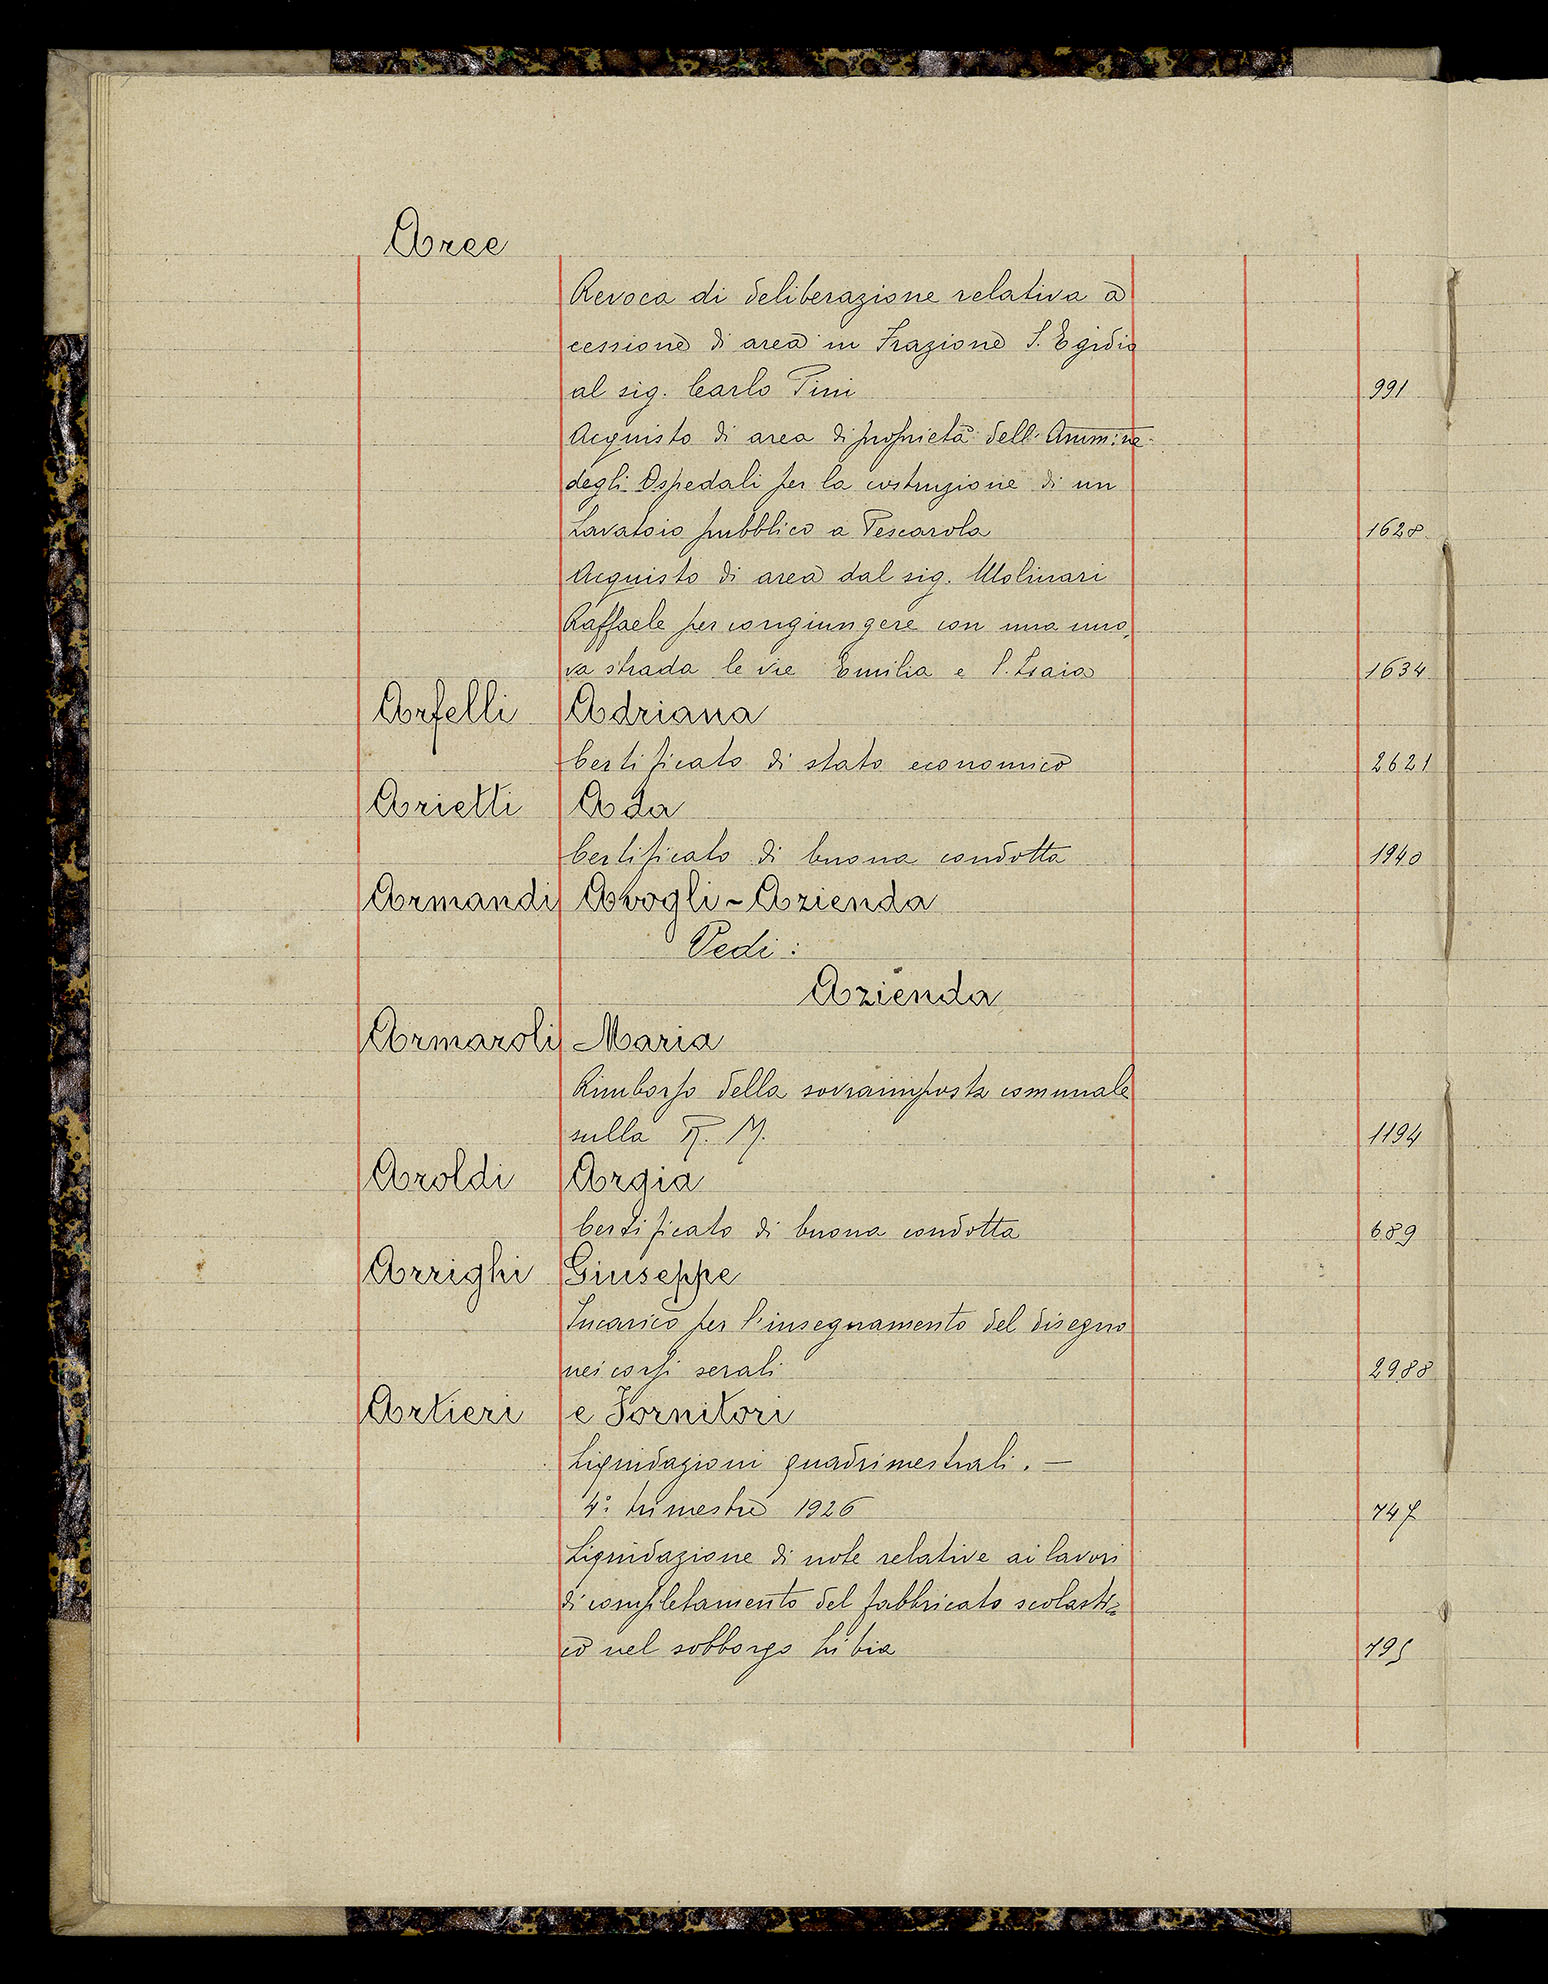 Aree
Revoca di deliberazione relativa a
cessione di area in Frazione S. Egidio
al sig. Carlo Pini 991
Acquisto di area di proprietà dell'Ammine
degli Ospedali per la costruzione di un
Lavatoio pubblico a Pescarola 1628
Acquisto di area dal sig. Molinari
Raffaele per congiungere con una nuo,
va strada le vie Emilia e S. Isaia 1634
Arfelli Adriana
Certificato di stato economico 2621
Arietti Ada
Certificato di buona condotta 1940
Armandi Avogli-Azienda
Vedi:
Azienda
Armaroli Maria
Rimborso della sovraimposta comunale
sulla R. M. 1194
Aroldi Argia
Certificato di buona condotta 689
Arrighi Giuseppe
Incarico per l'insegnamento del disegno
nei corsi serali 2988
Artieri e Fornitori
Liquidazioni quadrimestrali. —
4º trimestre 1926 747
Liquidazione di note relative ai lavori
di completamento del fabbricato scolasti=
co nel sobborgo Libia 795